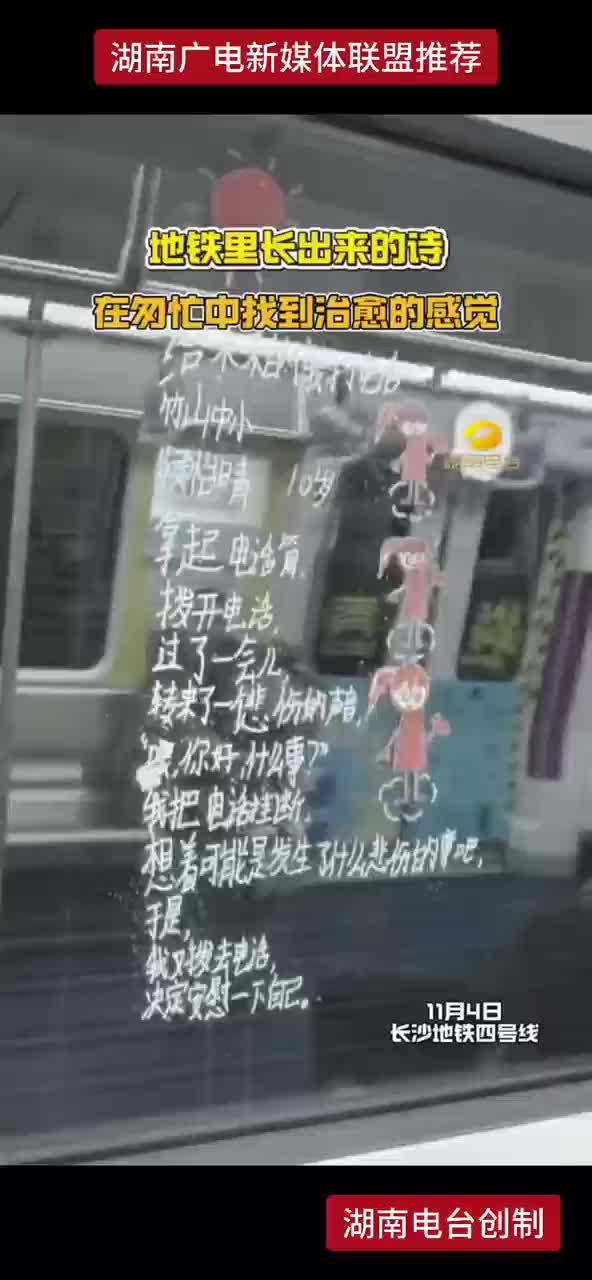 湖南广电新媒体联盟推荐
地铁里长出来的诗
在匆忙中找到治愈的感觉
给未来的我打电话
竹山中小
怡晴 10岁
拿起电话筒,
拨开电话,
过了一会儿,
转来了一悲伤的声音,
“喂,你好,什么事?”
我把电话挂断,
想着可能是发生了什么悲伤的事吧,
于是,
我又拨去电话,
决定安慰一下自己。
11月4日
长沙地铁四号线
湖南电台创制